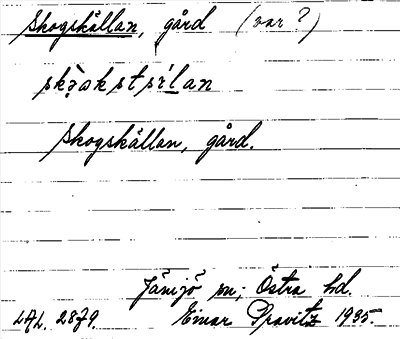 Skogskällan, gård (var?)
Skogskällan, gård.
Jämjö sn; Östra hd.
LAL. 2879. Einar Pravitz 1935.